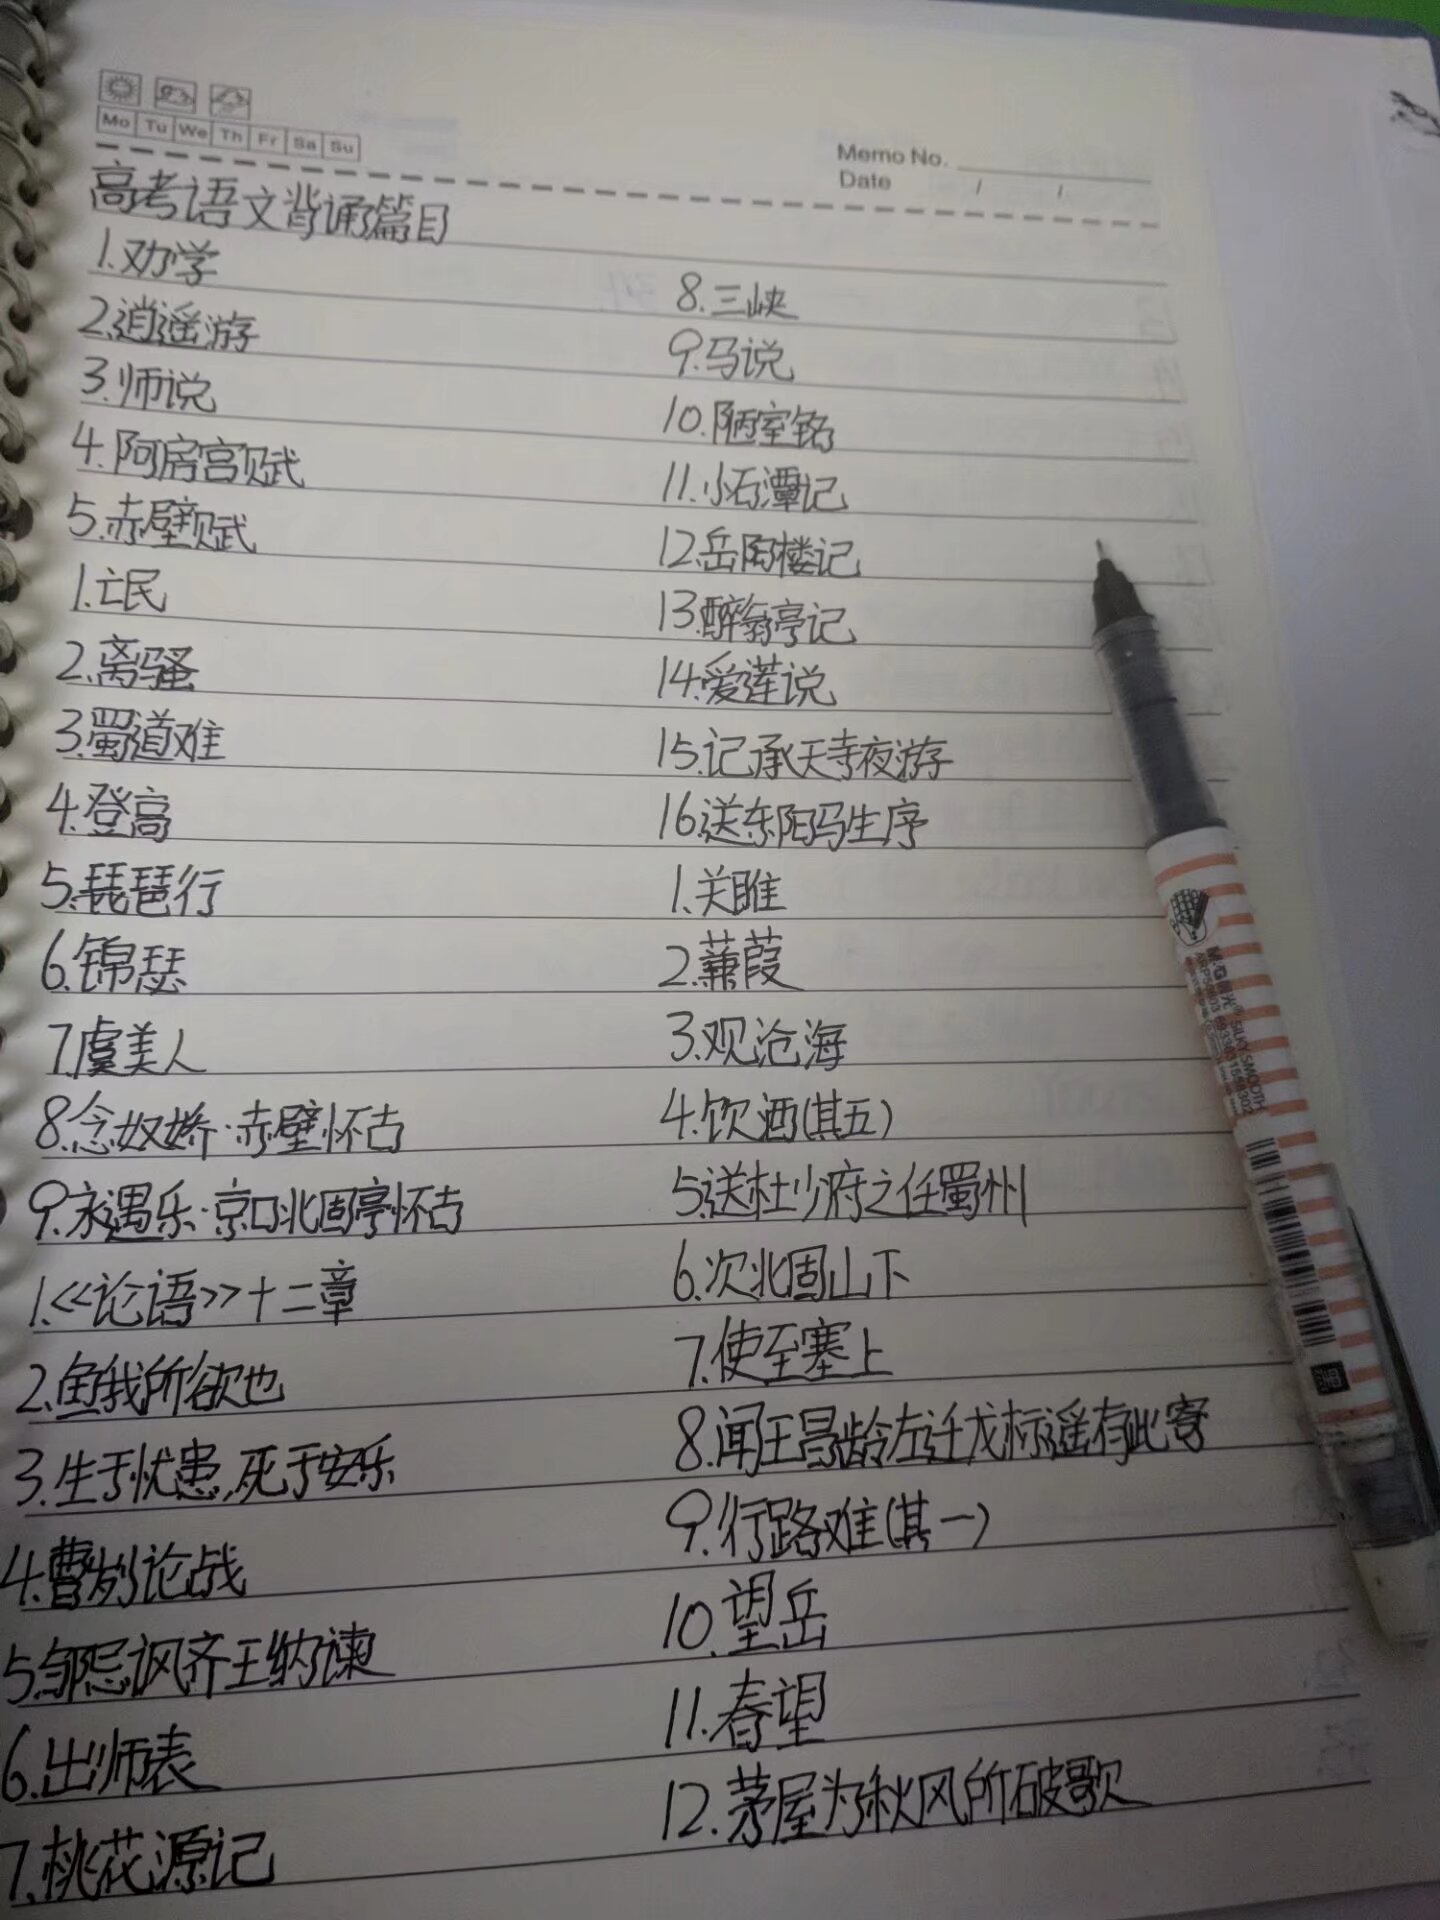 Mo Tu We Th Fr Sa Su
Memo No.
Date / /
高考语文背诵篇目
1.劝学
2.逍遥游
3.师说
4.阿房宫赋
5.赤壁赋
1.亡民
2.离骚
3.蜀道难
4.登高
5.琵琶行
6.锦瑟
7.虞美人
8.念奴娇·赤壁怀古
9.永遇乐·京口北固亭怀古
1.<<论语>>十二章
2.鱼我所欲也
3.生于忧患,死于安乐
4.曹刿论战
5.邹忌讽齐王纳谏
6.出师表
7.桃花源记
8.三峡
9.马说
10.陋室铭
11.小石潭记
12.岳阳楼记
13.醉翁亭记
14.爱莲说
15.记承天寺夜游
16.送东阳马生序
1.关雎
2.蒹葭
3.观沧海
4.饮酒(其五)
5.送杜少府之任蜀州
6.次北固山下
7.使至塞上
8.闻王昌龄左迁龙标遥有此寄
9.行路难(其一)
10.望岳
11.春望
12.茅屋为秋风所破歌
M&G 晨光® SILKY SMOOTH